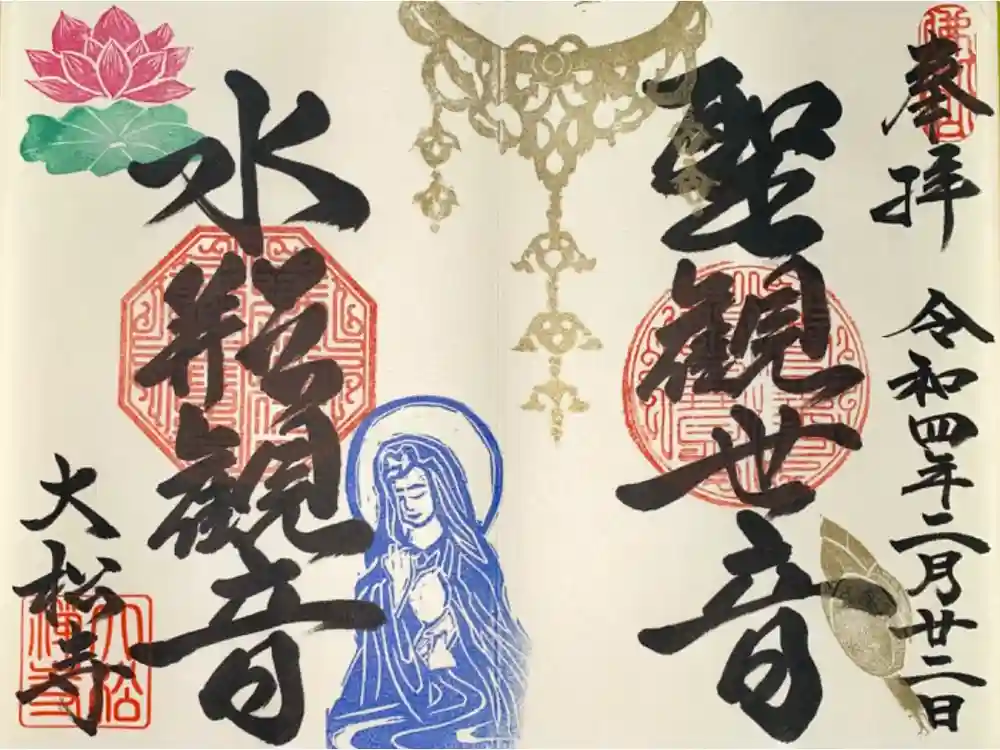 奉拝 令和四年二月廿二日
聖観世音
水瓶観音
大松寺